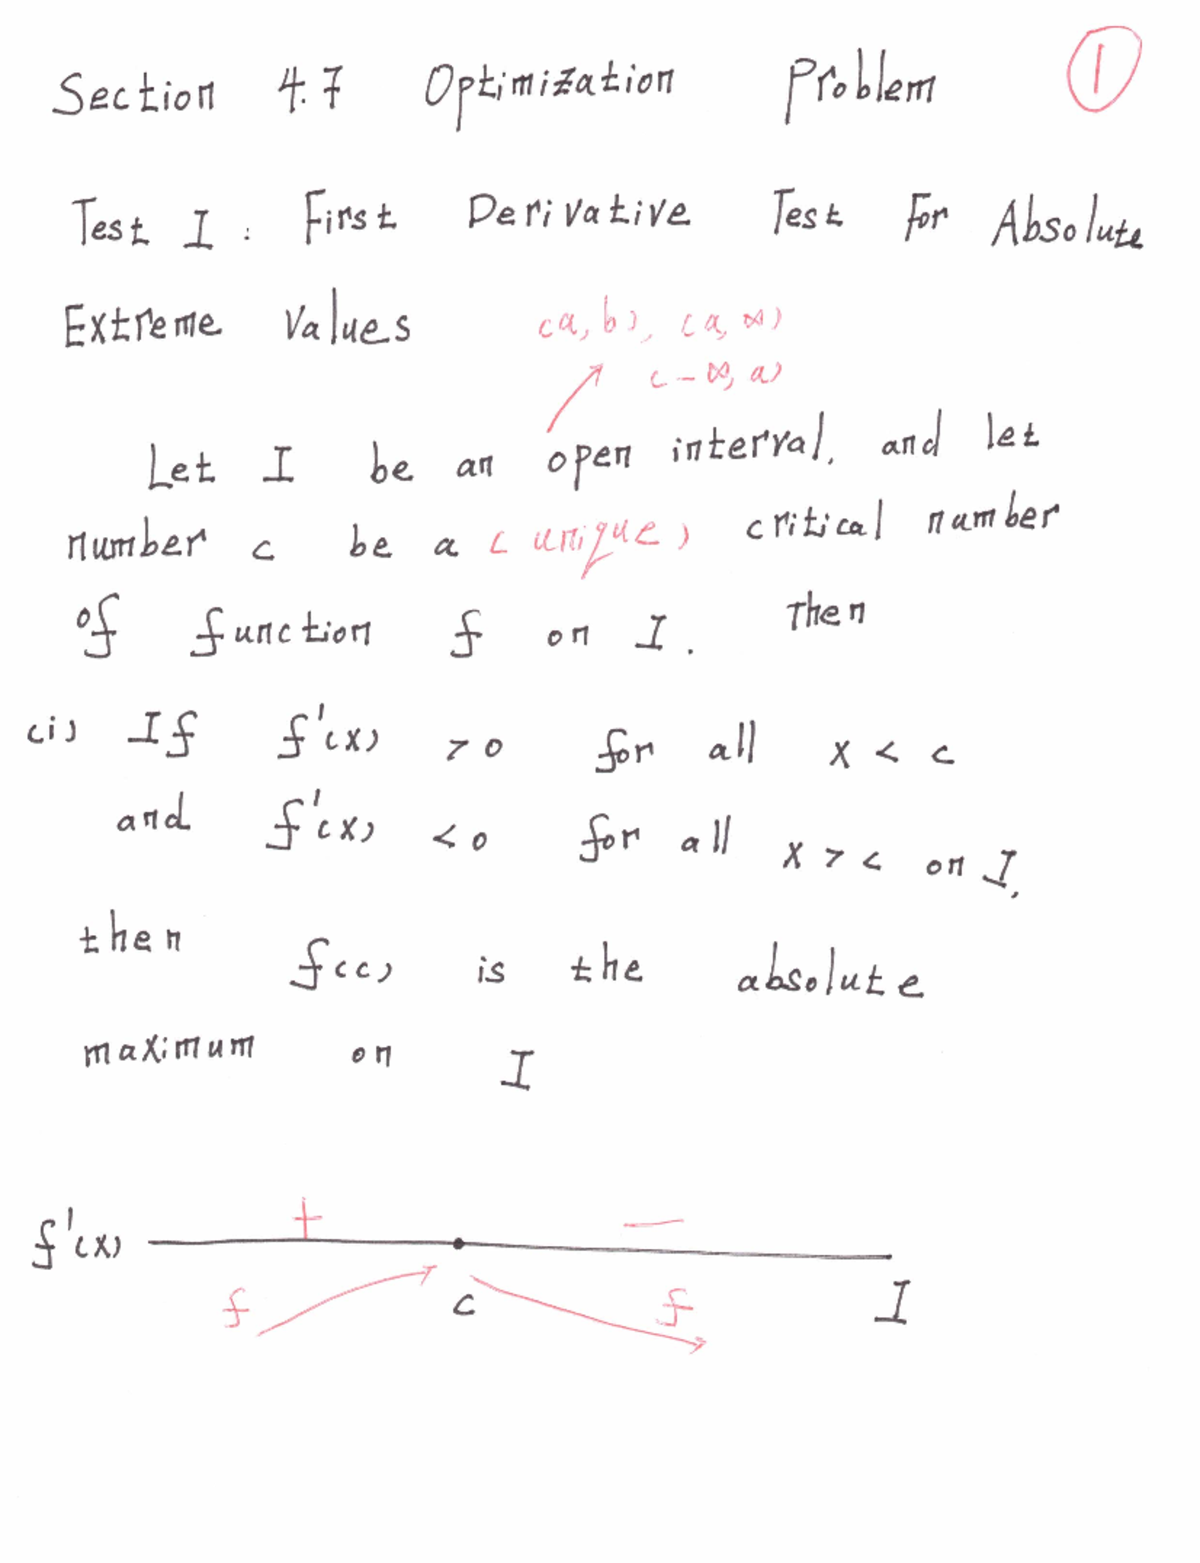 Section 4.7 Optimization Problem ①
Test I : First Derivative Test For Absolute
Extreme Values (a, b), (a, ∞)
(-∞, a)
Let I be an open interval, and let
number c be a (unique) critical number
of function f on I. Then
(i) If f'(x) > 0 for all x < c
and f'(x) < 0 for all x > c on I,
then f(c) is the absolute
maximum on I
+ —
f'(x)
f c f I